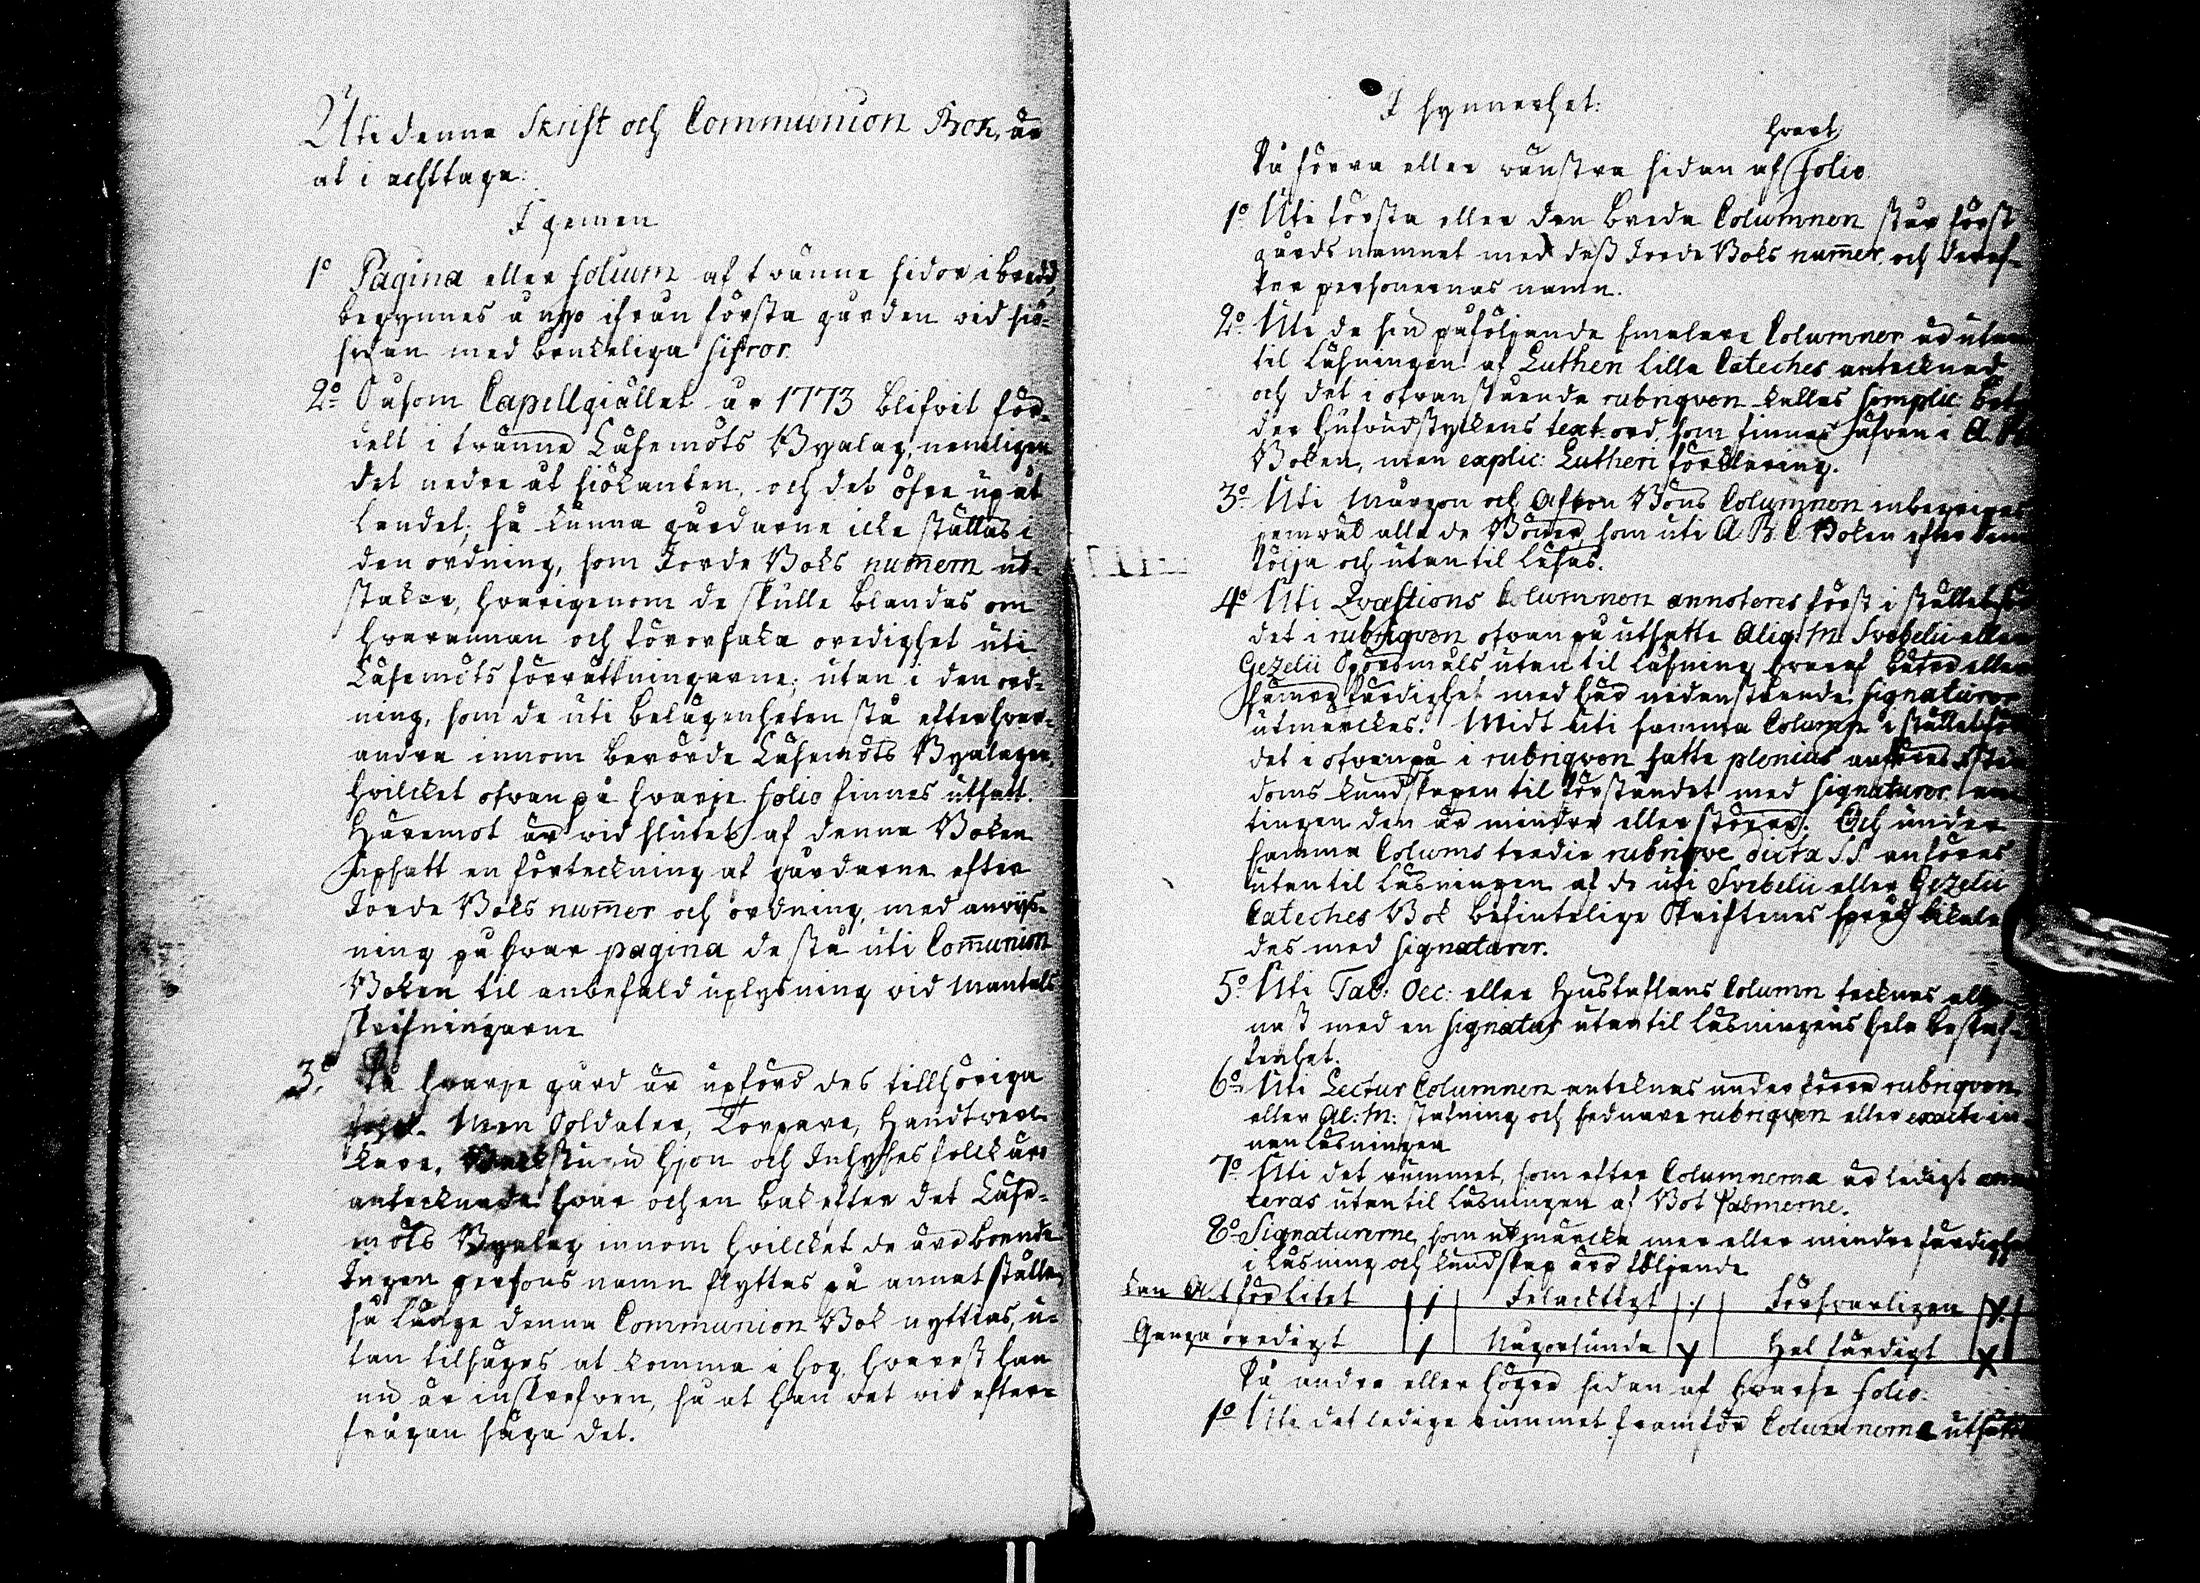 Uti denna Skrift och Communion Bok, är
at i achttaga:
I gemen
1º Pagina eller folium af tvänne sidor i bredd,
begynnes å nyo ifrån första gården vid siö-
sidan med brukeliga sifror.
2º Såsom Capellgiället år 1773 blifvit för-
delt i tvänne Läsemöts Byalag, nemligen
det nedre åt siökanten, och det öfre up åt
landet; så kunna gårdarne icke ställas i
den ordning, som Jorde Boks numern ut-
stakar, hvarigenom de skulle blandas om
hvarannan och förorsaka oredighet uti
Läsemöts förrättningarne; utan i den ord-
ning, som de uti belägenheten stå efter hvar-
andra innom berörde Läsemöts Byalagen,
hvilcket ofvan på hvarje folio finnes utsatt.
Häremot är vid slutet af denna Boken
upsatt en förteckning af gårdarne efter
Jorde Boks numer och ordning, med anvijs-
ning på hvar pagina de stå uti Communion
Boken til anbefald uplysning vid Mantals
skrifningarne
3º På hvarje gård är upförd des tillhöriga
folck. Men Soldater, Torpare, Handtverc-
kare, Backstugu hjon och Inhyses folck äro
antecknade hvar och en bak efter det Läse-
möts Byalag innom hvilcket de äro boende
Ingen persons namn flyttas på annat ställe,
så länge denna Communion Bok nyttias, u-
tan tilsäges at komma i hog, hvarest han
nu är inskrefven, så at han vet vid efter-
frågan säga det.
I synnerhet:
hvart
På förra eller vänstra sidan af folio
1º Uti första eller den breda Columnen står först
gårds namnet med dess Jorde Boks numer, och deref-
ter personernas namn.
2º Uti de sen påföljande smalare Columner är utan
til läsningen af Lutheri lilla Cateches antecknad
och det i ofvanstående rubriqven kallas simplic:
der hufvudstyckens text-ord, som finnes häfven i A. B.
Boken, men explic: Lutheri förklaring.
3º Uti Morgon och Afton Böns Columnen inbegripes
jemväl alla de Böner, som uti A B C Boken efter dem
följa och utantil läsas.
4º Uti Qvæstions Columnen annoteres först i stället för
det i rubriqven ofvan på utsatte Aliq: M: Svebelii eller
Gezelii Spörsmåls utantil läsning hvaraf bättre eller
sämre färdighet med här nedanstående Signaturer
utmerckes. Midt uti samma Column i stället för
det i ofvanpå i rubriqven satte plenius anföres
doms kundskapen til förståndet med Signaturer,
tingen den är mindre eller större. Och under
samma Colums tredie rubriqve dicta SS anföres
utantil läsningen af de uti Svebelii eller Gezelii
Cateches Bok befintelige Skriftenes språk
des med Signaturer.
5º Uti Tab: Oec: eller Hustaflans Column tecknes alle-
nast med en Signatur utantil läsningens hela beskaf-
fenhet.
6º Uti Lectur Columnen antecknas under förra rubriqven
eller Al: M: stafning och sednare rubriqven eller exacte in-
nan läsningen
7º Uti det rummet, som efter Columnerna är ledigt anno-
teras utantil läsningen af Bot Psalmerne.
8º Signaturerne, som utmärcka mer eller mindre färdighet
i läsning och kundskap äro följande
kan Altför litet | Felachtigt | Försvarligen
Ganza oredigt | Någorlunda | Hel färdigt
På andra eller höger sidan af hvarje folio:
1º Uti det ledige rummet framför Columnerna utsättes